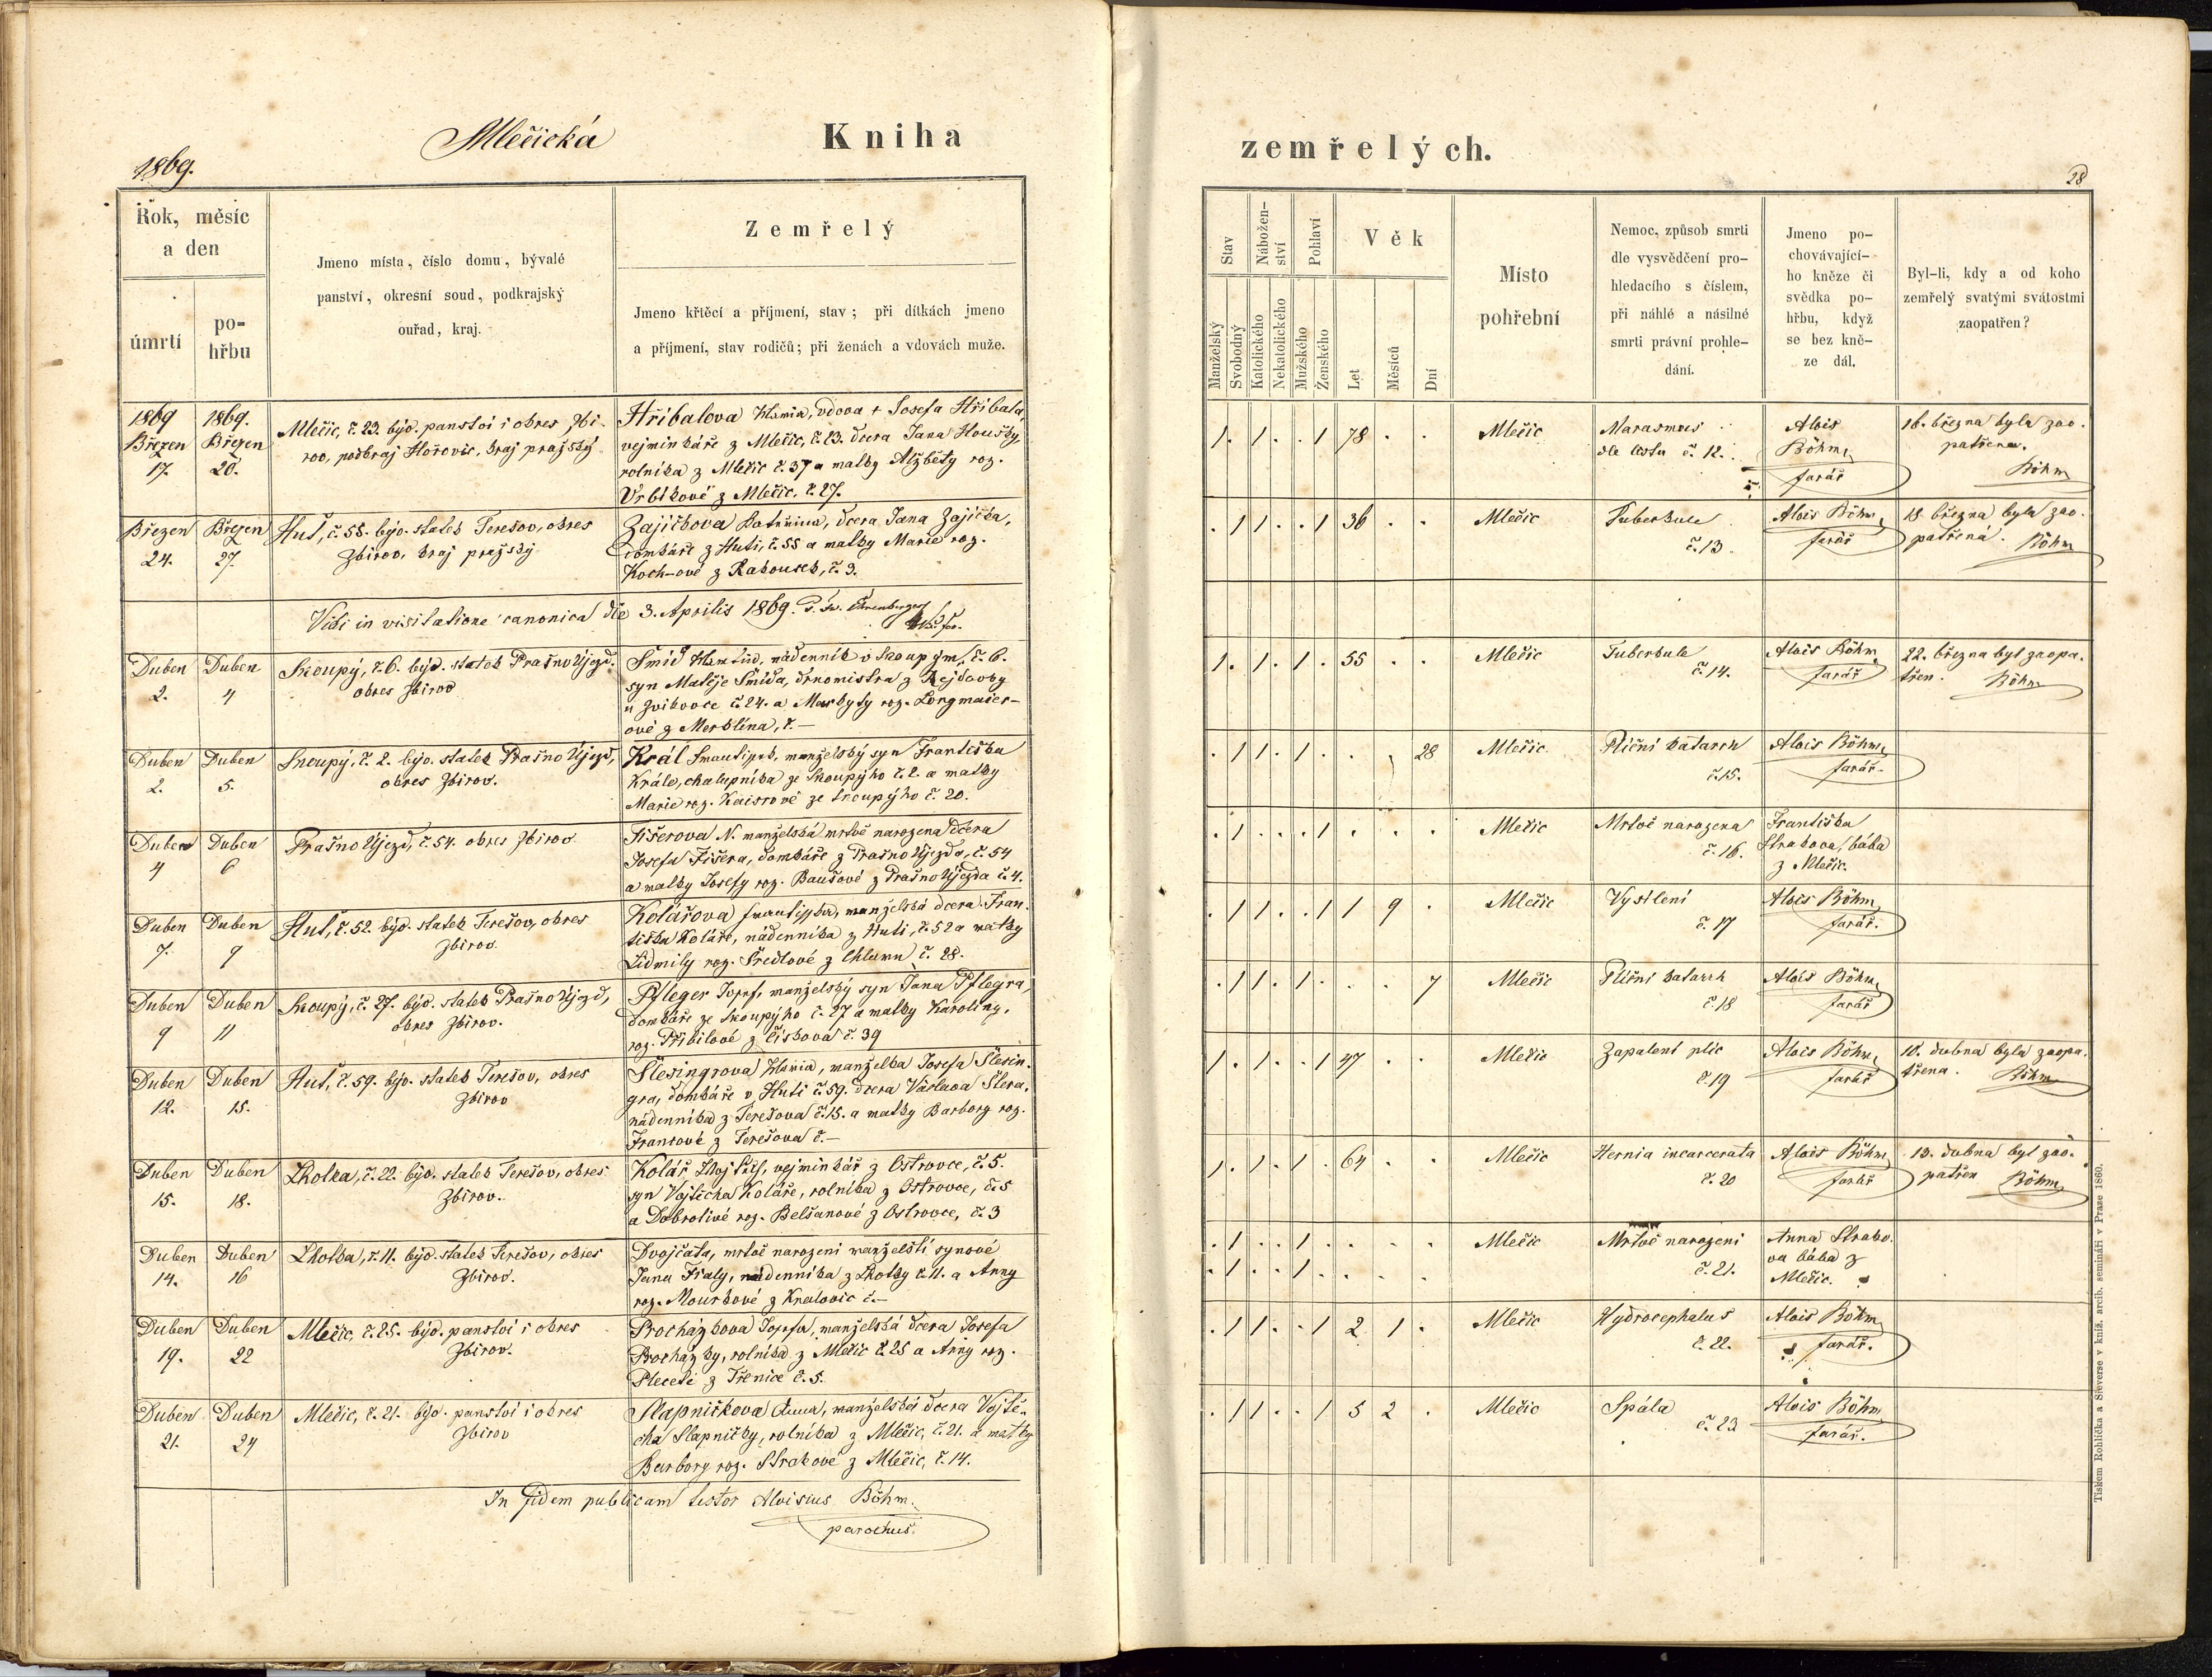 Mlečická
Kniha
zemřelých.
1869.
28
Rok, měsíc
a den
úmrtí
po-
hřbu
Jmeno místa, číslo domu, bývalé
panství, okresní soud, podkrajský
ouřad, kraj.
Zemřelý
Jmeno křtěcí a příjmení, stav; při dítkách jmeno
a příjmení, stav rodičů; při ženách a vdovách muže.
Stav
Nábožen-
ství
Pohlaví
Věk
Manželský
Svobodný
Katolického
Nekatolického
Mužského
Ženského
Let
Měsíců
Dní
Místo
pohřební
Nemoc, způsob smrti
dle vysvědčení pro-
hledacího s číslem,
při náhlé a násilné
smrti právní prohle-
dání.
Jmeno po-
chovávající-
ho kněze či
svědka po-
hřbu, když
se bez kně-
ze dál.
Byl-li, kdy a od koho
zemřelý svatými svátostmi
zaopatřen?
1869
Březen
17.
1869.
Březen
20.
Mlečic, č. 23. býv. panství i okres Zbi-
rov, podkraj Hořovic, kraj pražský
Hřibalova Maria, vdova + Josefa Hřibala,
vejminkáře z Mlečic, č. 23. dcera Jana Houšky,
rolníka z Mlečic č. 37 a matky Alžběty roz.
Vrbikové z Mlečic. č. 27.
1. 1. . 1 78 . .
Mlečic
Marasmus
dle listu č. 12.
Alois
Böhm,
farář
16. března byla zao-
patřena.
Böhm
Březen
24.
Březen
27.
Huť, č. 55. býv. statek Terešov, okres
Zbirov, kraj pražský
Zajíčkova Kateřina, dcera Jana Zajíčka,
domkáře z Huti, č. 55 a matky Marie roz.
Koch-ové z Rakousek, č. 3.
. 1 1 . . 1 36 . .
Mlečic
Tuberkule
č. 13.
Alois Böhm,
farář
18. března byla zao-
patřená. Böhm
Vidi in visitatione canonica die 3. Aprilis 1869.
Duben
2.
Duben
4
Skoupý, č. 6. býv. statek PrašnoÚjezd,
okres Zbirov
Šmíd Martin, nádenník v Skoupým, č. 6.
syn Matěje Šmída, drnomistra z
u Zvíkovce č. 24. a Markyty roz. Longmaier-
ové z Merklína, č. —
1. 1. 1 . 55 . .
Mlečic
Tuberkule
č. 14.
Alois Böhm,
farář
22. března byl zaopa-
třen. Böhm
Duben
2.
Duben
5.
Skoupý, č. 2. býv. statek Prašno Újezd,
okres Zbirov.
Král František, manželský syn Františka
Krále, chalupníka ze Skoupýho č. 2. a matky
Marie roz. Kaisrové ze Skoupýho č. 20.
. 1 1 . 1 . . . 28
Mlečic
Plicní katarrh
č. 15.
Alois Böhm,
farář.
Duben
4
Duben
6
Prašno Újezd, č. 54. okres Zbirov
Fišerova N. manželská mrtvě narozena dcera
Josefa Fišera, domkáře z Prašno Újezda, č. 54
a matky Josefy roz. Baušové z Prašno Újezda č. 4.
. 1 . . . 1 . . .
Mlečic
Mrtvě narozena
č. 16.
Františka
Strakova, bába
z Mlečic.
Duben
7.
Duben
9
Huť, č. 52. býv. statek Terešov, okres
Zbirov.
Kolářova Františka, manželská dcera Fran-
tiška Koláře, nádenníka z Huti, č. 52 a matky
Lidmily roz. Šredlové z Chlumu č. 28.
. 1 1 . . 1 1 9 .
Mlečic
Vysílení
č. 17
Alois Böhm,
farář.
Duben
9
Duben
11
Skoupý, č. 27. býv. statek Prašno Újezd,
okres Zbirov.
Pfleger Josef, manželský syn Jana Pflegra,
domkáře ze Skoupýho č. 27 a matky Karolíny,
roz. Přibilové z Čiskova č. 39
. 1 1 . 1 . . . 7
Mlečic
Plicní katarrh
č. 18
Alois Böhm,
farář
Duben
12.
Duben
15.
Huť, č. 59. býv. statek Terešov, okres
Zbirov
Šlesingrova Maria, manželka Josefa Šlesin-
gra, domkáře v Huti č. 59. dcera Václava Šlera,
nádenníka z Terešova č. 15. a matky Barbory roz.
Francové z Terešova č. —
1. 1. . 1 47 . .
Mlečic
Zapalení plic
č. 19
Alois Böhm,
farář
10. dubna byla zaopa-
třena. Böhm
Duben
15.
Duben
18.
Lhotka, č. 22. býv. statek Terešov, okres
Zbirov.
Kolář Vojtěch, vejminkář z Ostrovce, č. 5.
syn Vojtěcha Koláře, rolníka z Ostrovce, č. 5
a Dobrotivé roz. Belšanové z Ostrovce, č. 3
1. 1. 1 . 64 . .
Mlečic
Hernia incarcerata
č. 20
Alois Böhm
farář
13. dubna byl zao-
patřen Böhm
Duben
14.
Duben
16
Lhotka, č. 11. býv. statek Terešov, okres
Zbirov.
Dvojčata, mrtvě narozeni manželští synové
Jana Fialy, nádenníka z Lhotky č. 11. a Anny
roz. Mourkové z Kralovic č. —
. 1 . . 1 . . . .
. 1 . . 1 . . . .
Mlečic
Mrtvě narozeni
č. 21.
Anna Strako-
va bába z
Mlečic.
Duben
19.
Duben
22
Mlečic, č. 25. býv. panství i okres
Zbirov.
Procházkova Josefa, manželská dcera Josefa
Procházky, rolníka z Mlečic č. 25 a Anny roz.
Pleceti z Třenice č. 5.
. 1 1 . . 1 2 1 .
Mlečic
Hydrocephalus
č. 22.
Alois Böhm,
farář.
Duben
21.
Duben
24
Mlečic, č. 21. býv. panství i okres
Zbirov
Slapničkova Anna, manželská dcera Vojtě-
cha Slapničky, rolníka z Mlečic, č. 21. a matky
Barbory roz. Strakové z Mlečic, č. 14.
. 1 1 . . 1 5 2 .
Mlečic
Spála
č. 23
Alois Böhm,
farář.
In fidem publicam testor Aloisius Böhm.
parochus.
Tiskem Rohlíčka a Sieverse v kníž. arcib. semináři v Praze 1860.